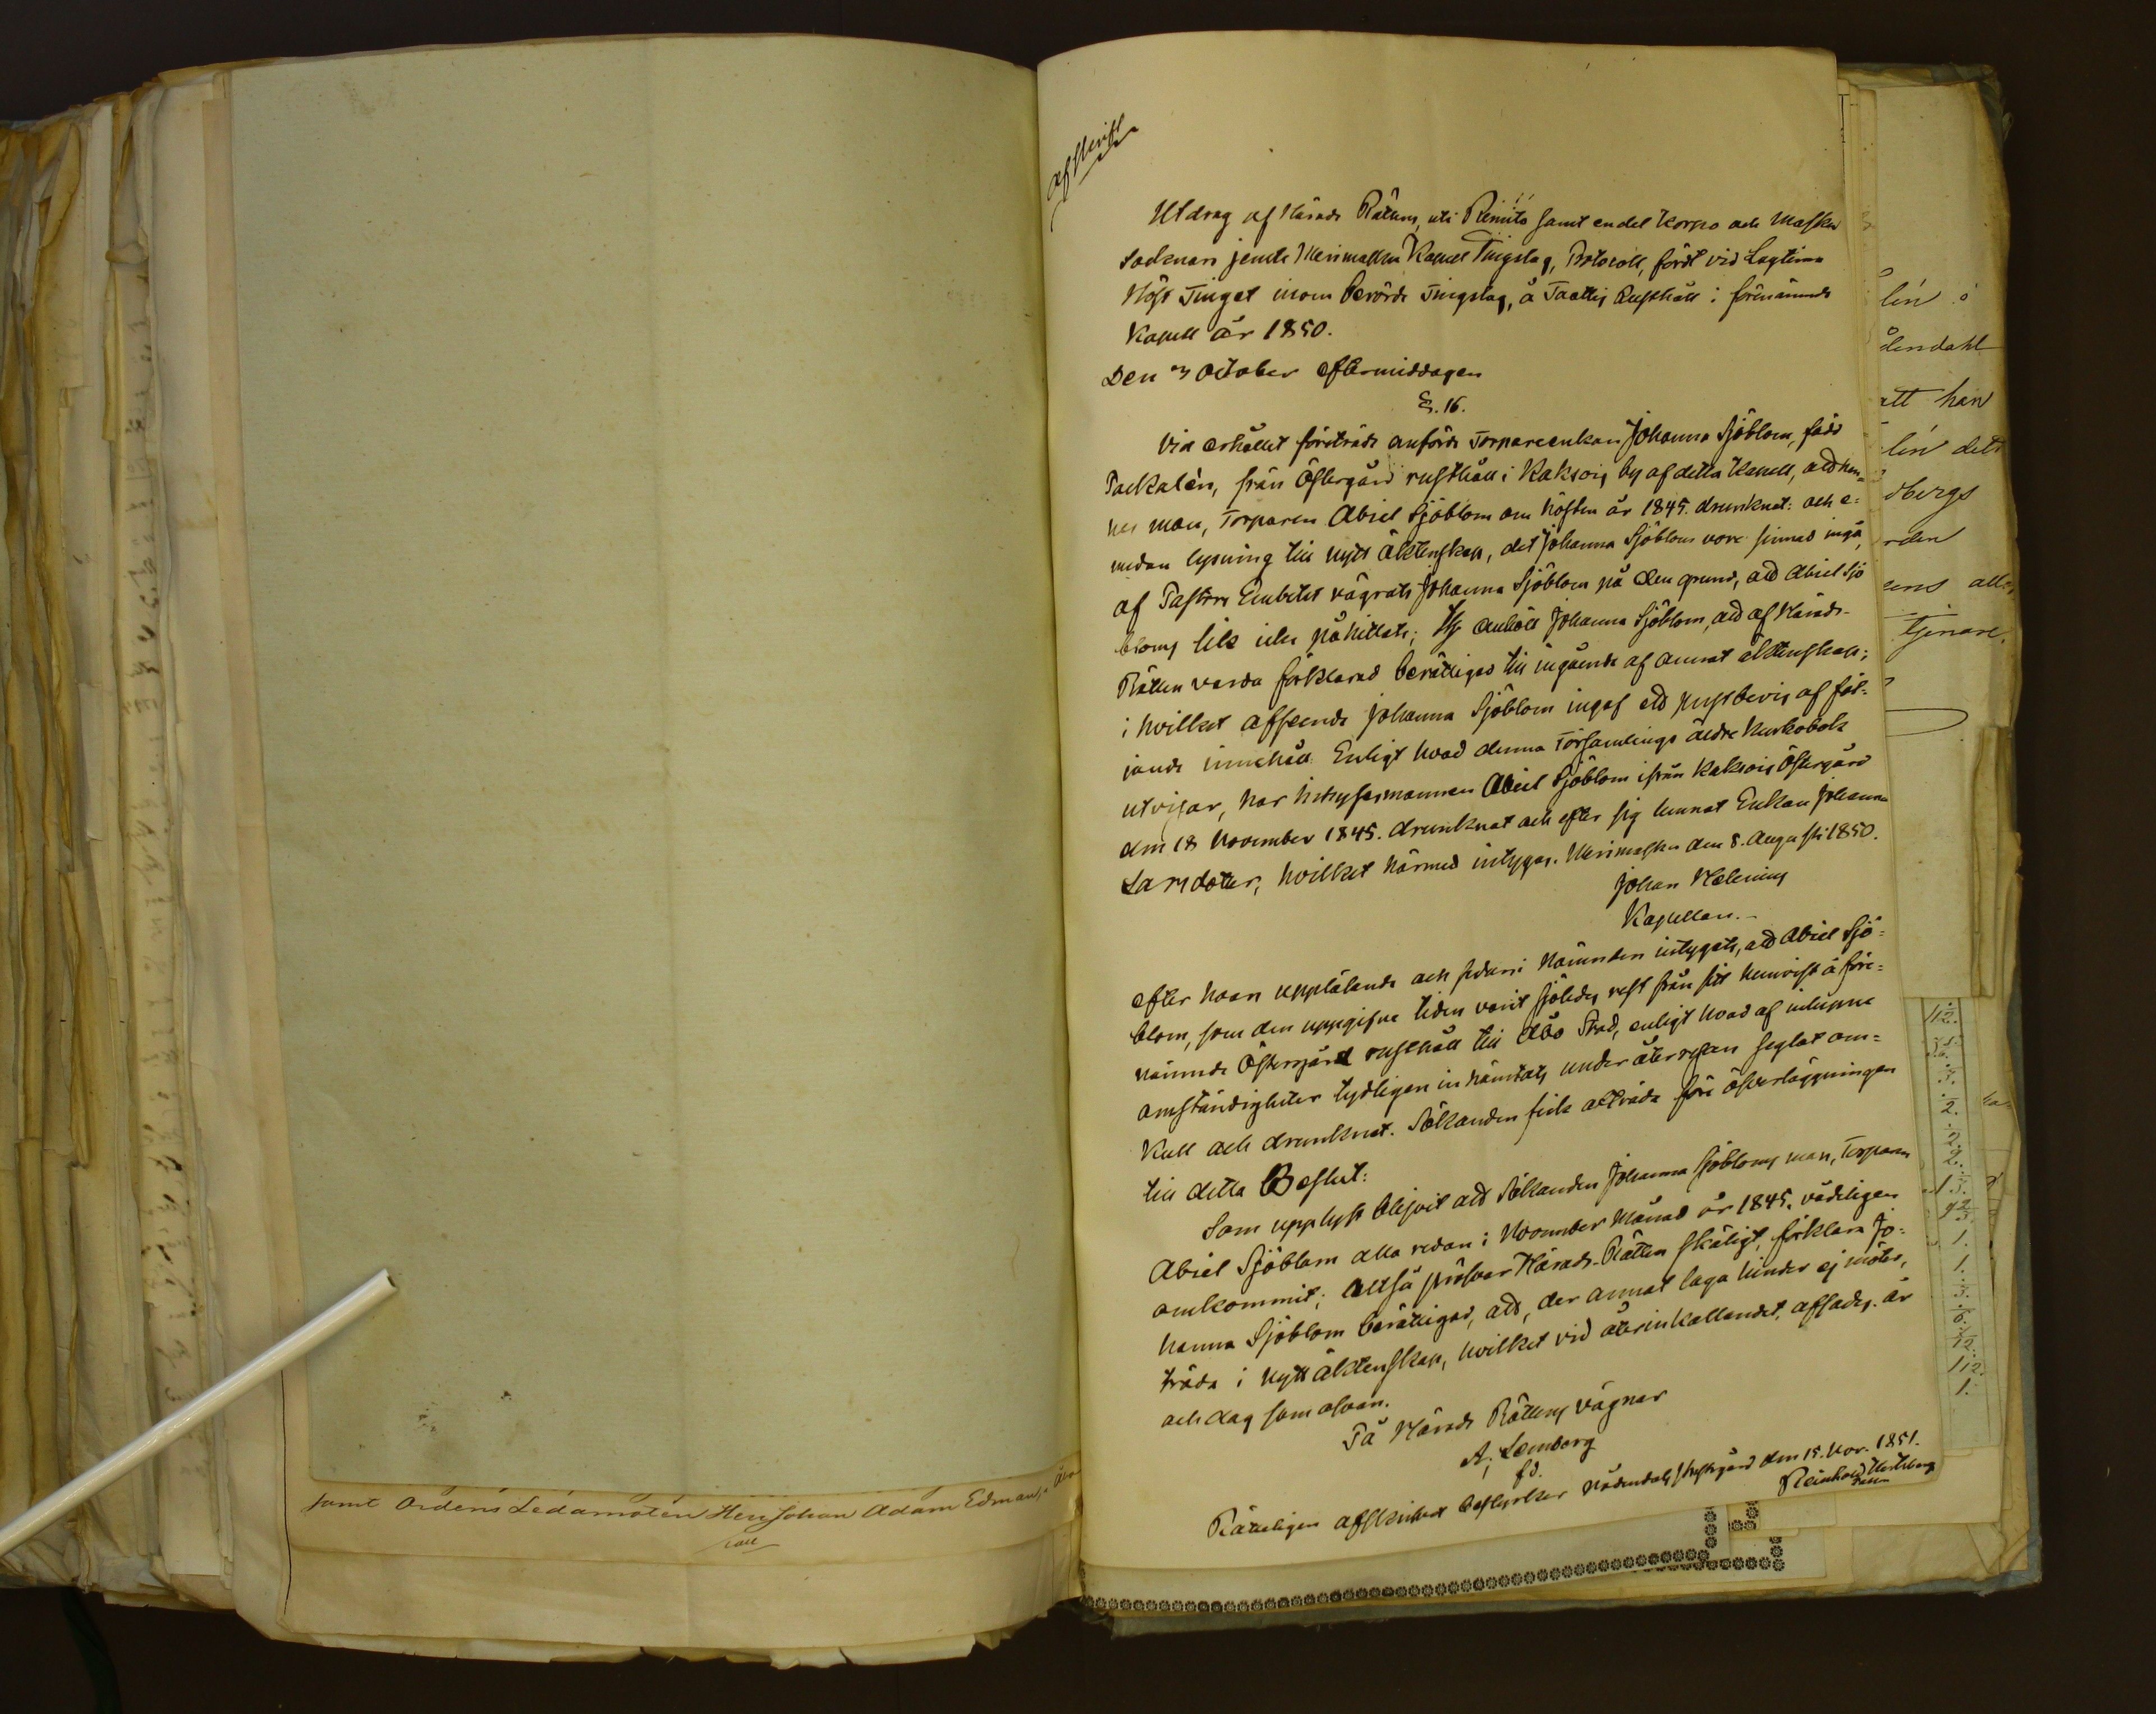 samt Ordens Ledamoten Herr Johan Adam Edman, i Åbo
Afskrift
Utdrag af Härads Rättens, uti Rimito samt en del Korpo och Masku
Socknars jemte Merimasku Kapell Tingslag, Protocoll, fördt vid Lagtima
Höst Tinget inom berörde Tingslag, å Taattis Rusthåll i förenämnde
Kapell år 1850.
Den October eftermiddagen
§. 16.
Vid erhållit företräde anförde Torpareenkan Johanna Sjöblom, född
Packalén, från Östergård rusthåll i Kaksois by af detta Kapell, att hen-
nes man, Torparen Abiel Sjöblom om hösten år 1845. drunknat: och e-
medan lysning till nytt äktenskap, det Johanna Sjöblom vore sinnad ingå,
af Pastors Embetet vägrats Johanna Sjöblom på den grund, att Abiel Sjö
bloms lik icke påhittats; Ty anhöll Johanna Sjöblom, att af Härads-
Rätten varda förklarad berättigad till ingående af annat äktenskap;
i hvilket afseende Johanna Sjöblom ingaf ett prestbevis af föl-
jande innehåll: Enligt hvad denna Församlings äldre Kyrkobok
utvisar, har inhysesmannen Abiel Sjöblom ifrån Kaksois Östergård
den 18 November 1845. drunknat och efter sig lemnat Enkan Johanna
Larsdotter, hvilket härmed intygas. Merimasku den 8. Augusti 1850.
Johan Helenius
Kapellan.-
efter hvars uppläsande och sedan Nämnden intygat, att Abiel Sjö-
blom, som den uppgifne tiden varit sjöledes rest från sitt hemvist å före-
nämnde Östergård rusthåll till Åbo Stad, enligt hvad af inlupne
omständigheter tydligen inhämtats under återresan seglat om-
kull och drunknat. Sökanden fick afträda före öfverläggningen
till detta Beslut:
Som upplyst blifvit att Sökanden Johanna Sjöbloms man, Torparen
Abiel Sjöblom alla redan i November Månad år 1845. vådeligen
omkommit; Alltså pröfvar Härads-Rätten skäligt, förklara Jo-
hanna Sjöblom berättigad, att, der annat laga hinder ej möter,
träda i nytt äktenskap, hvilket vid återinkallandet, afsades. år
och dag som ofvan.
På Härads Rättens vägnar
A. Lemberg
fd.
Rätteligen afskrifvit bestyrker Nådendals den 15. Nov. 1851.
Reinhold
lén
att han
lén det
bergs
rden
112.
2.
1.
1.
12.
112.
1.